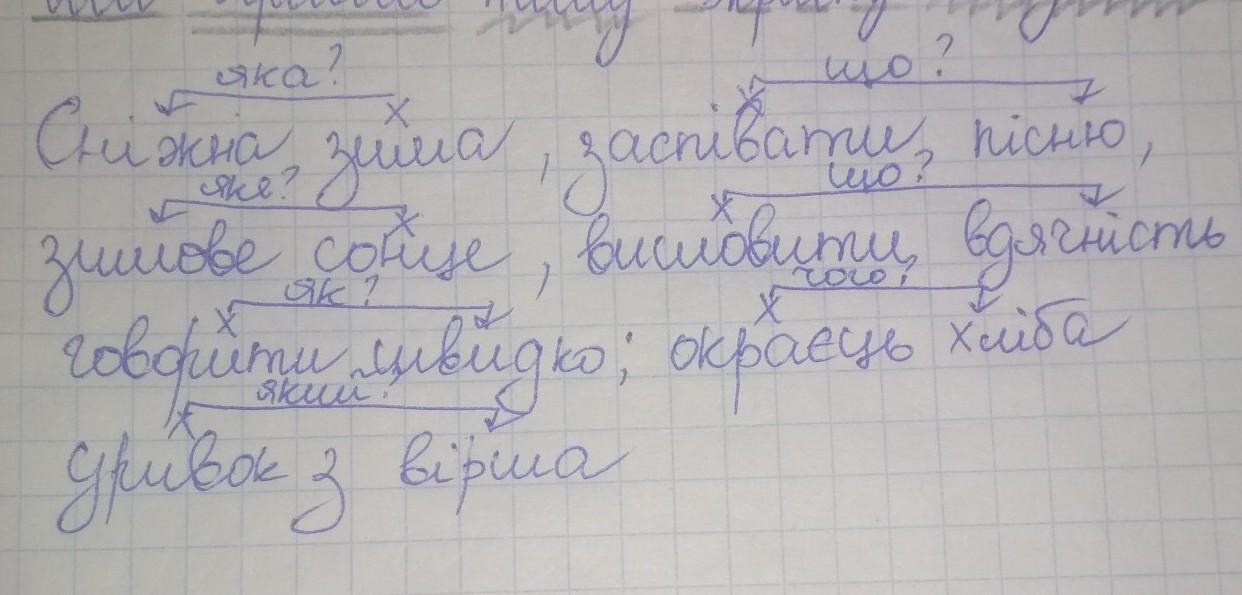 нашу
яка? що?
Сніжна зима, заспівати пісню,
яке? що?
зимове сонце, висловити вдячність
як? чого?
говорити швидко; окраєць хліба
який?
уривок з вірша